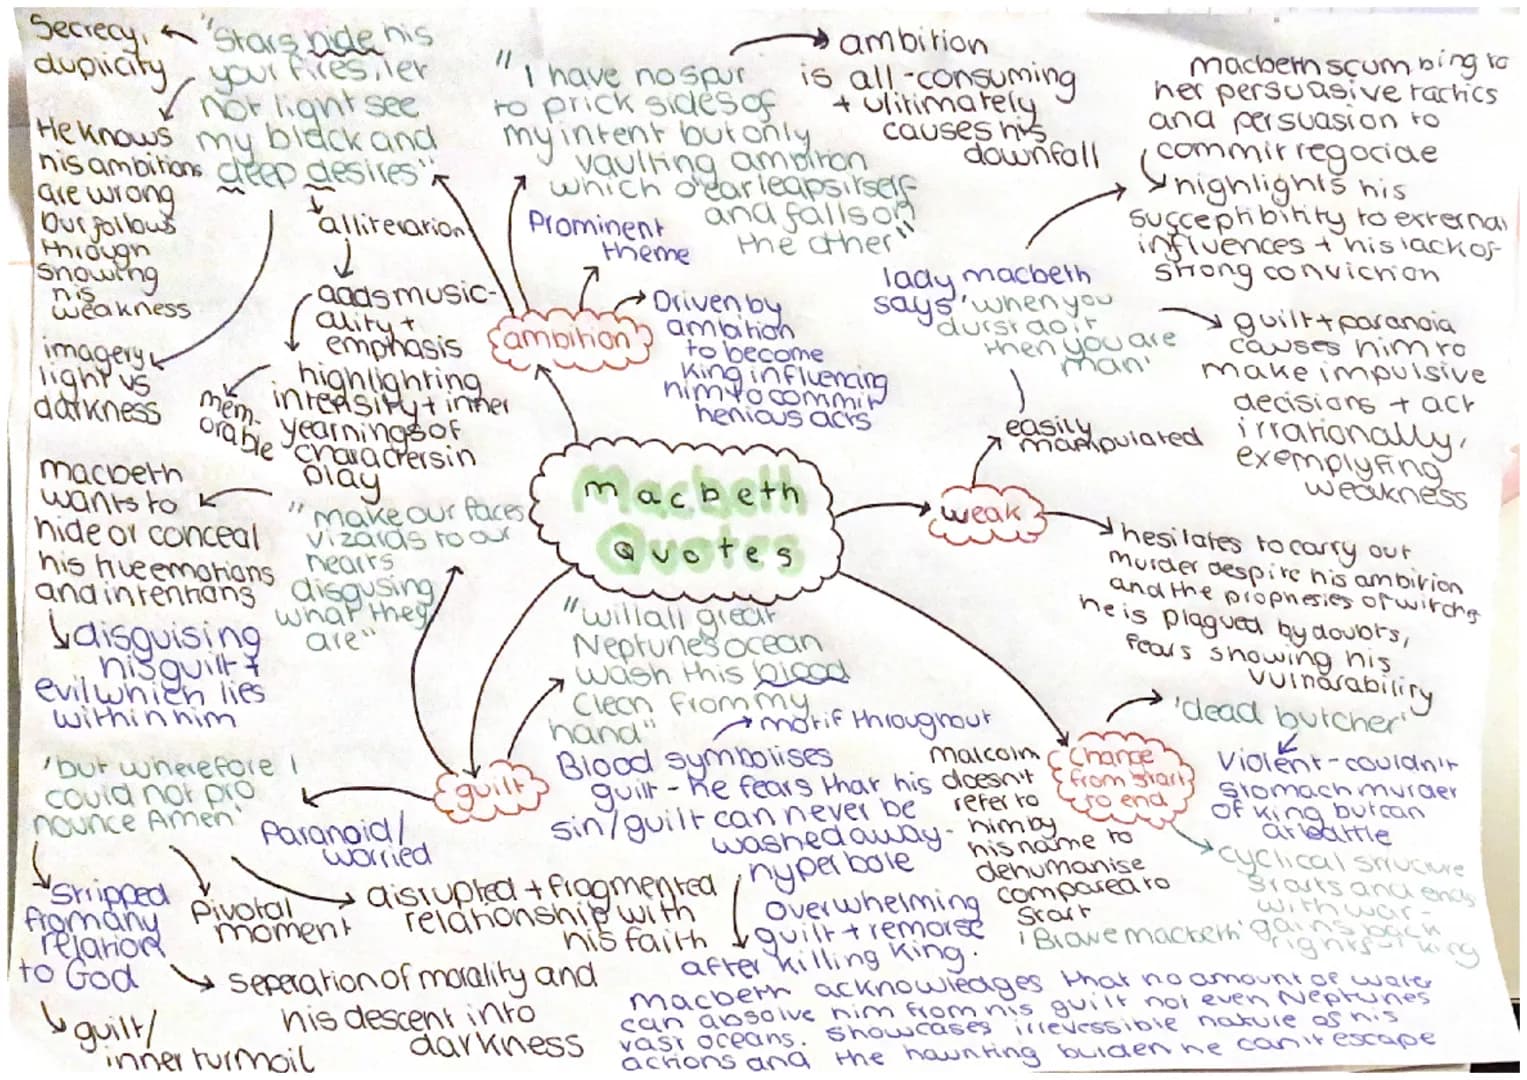 Macbeth
Quotes
ambition
"Stars hide his
your fires, let
not light see
my black and
deep desires"
Secrecy,
duplicity
He knows
his ambitions
are wrong
but follows
through
showing
his
weakness
imagery
light vs
darkness
alliteration
adds music-
ality +
emphasis
highlighting
intensity + inner
yearnings of
characters in
play
mem-
orable
"I have no spur
to prick sides of
my intent but only
vaulting ambition
which o'earleaps itself
and falls on
the other"
ambition
is all-consuming
+ ulitimately
causes his
downfall
Prominent
theme
Driven by
ambition
to become
king influencing
him to commit
henious acts
weak
easily
manipulated
lady macbeth
says 'when you
durst do it
then you are
man'
macbeth scumbing to
her persuasive tactics
and persuasion to
commit regocide
highlights his
succeptibility to external
influences + his lack of
strong conviction
guilt + paranoia
causes him to
make impulsive
decisions + act
irrationally,
exemplyfing
weakness
hesitates to carry out
murder despite his ambition
and the prophesies of witches
he is plagued by doubts,
fears showing his
vulnarability
Change
from start
to end
'dead butcher'
Violent - couldn't
stomach murder
of king but can
at battle
malcolm
doesn't
refer to
him by
his name to
dehumanise
compared to
start
'Brave macbeth'
cyclical structure
starts and ends
with war -
gains back
rights king
guilt
"make our faces
vizards to our
hearts
disgusing
what they
are"
macbeth
wants to
hide or conceal
his true emotions
and intentions
disguising
his guilt +
evil which lies
within him
"will all great
Neptune's ocean
wash this blood
clean from my
hand"
motif throughout
Blood symbolises
guilt - he fears that his
sin/guilt can never be
washed away -
hyperbole
overwhelming
guilt + remorse
after killing king.
macbeth acknowledges that no amount of water
can absolve him from his guilt not even Neptunes
vast oceans. showcases irrevessible nature of his
actions and the haunting burden he can't escape
'but wherefore I
could not pro
nounce Amen'
Paranoid/
worried
Stripped
from any
relation
to God
guilt/
inner turmoil
Pivotal
moment
disrupted + fragmented
relationship with
his faith
seperation of morality and
his descent into
darkness